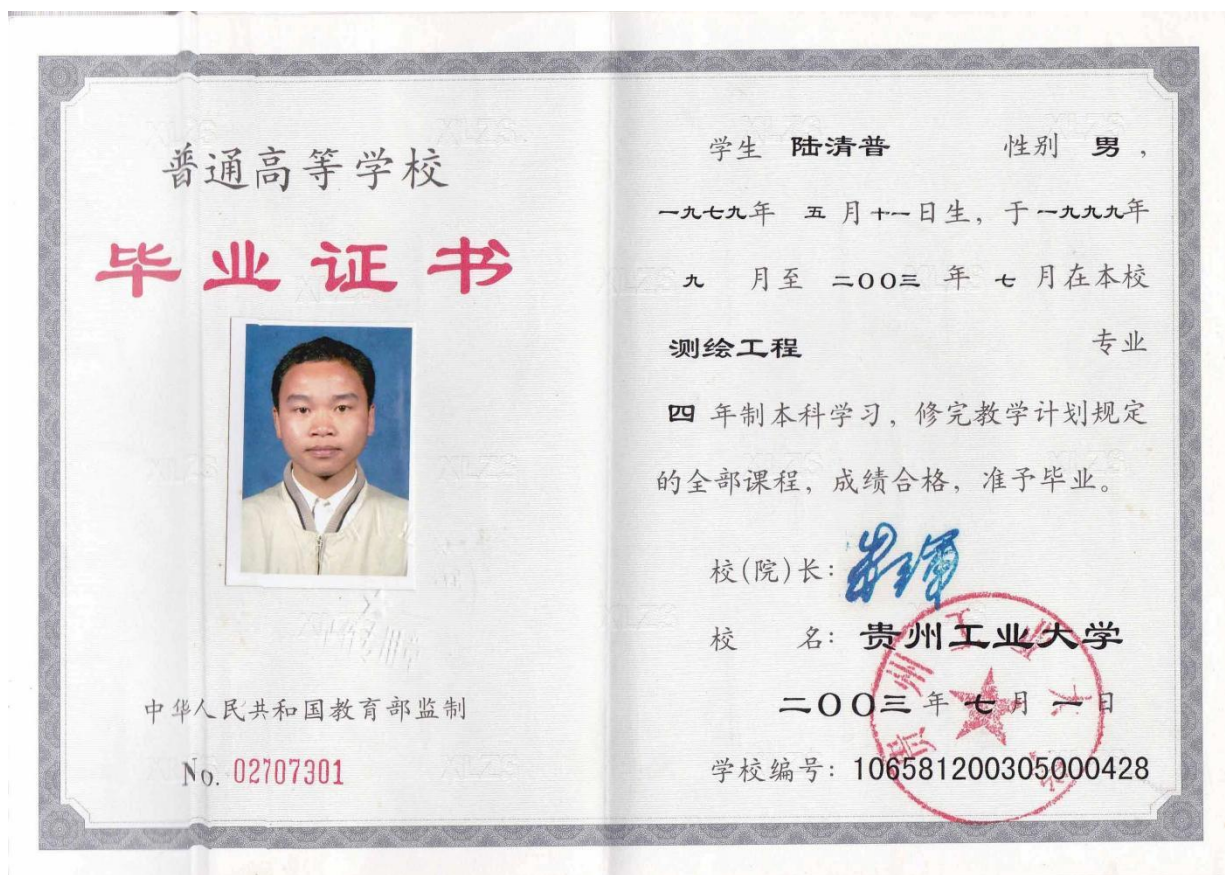 普通高等学校
毕业证书
中华人民共和国教育部监制
No. 02707301
学生 陆清普 性别 男,
一九七九年 五 月十一日生, 于一九九九年
九 月至 二〇〇三 年 七 月在本校
测绘工程 专业
四 年制本科学习, 修完教学计划规定
的全部课程, 成绩合格, 准予毕业。
校(院)长:
校 名: 贵州工业大学
二〇〇三年 七月 一日
学校编号: 106581200305000428
贵州工业大学